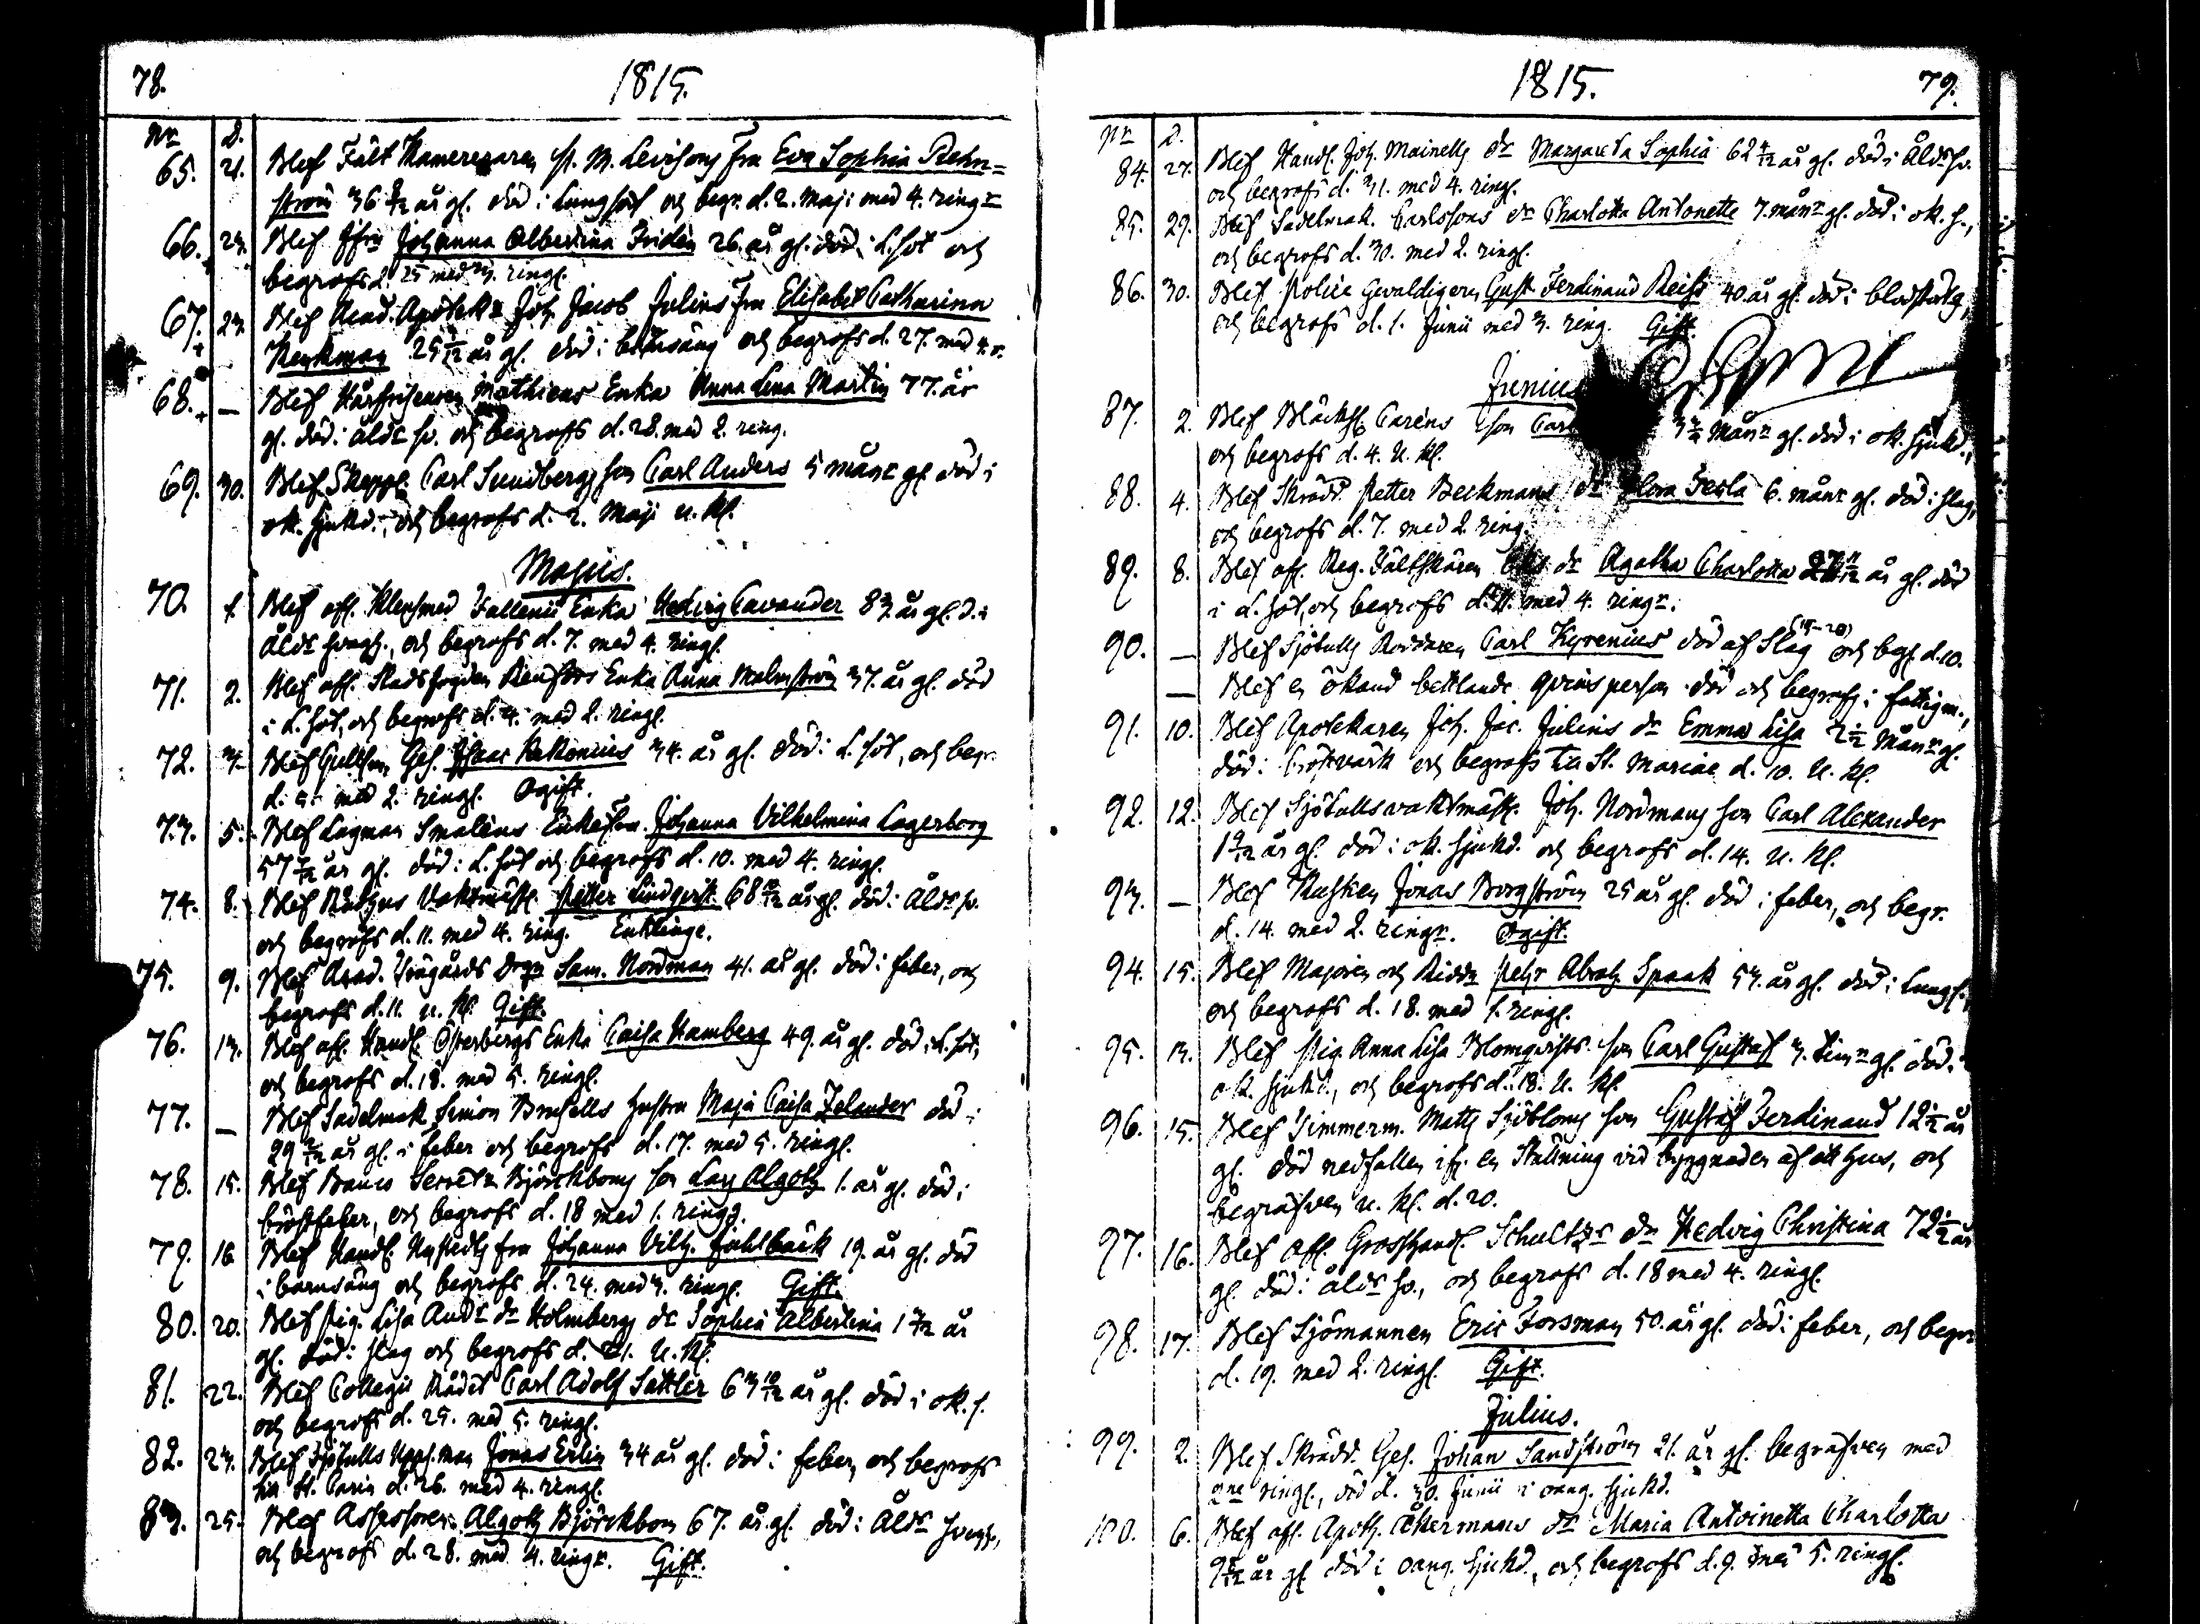 78.
1815.
Nr D.
65. 21. Blef Fält Kamereraren M. Levisons fru Eva Sophia Rehn=
ström 36 år gl. död i Lungsot och begr. d. 2. Maji med 4. ringr
66. 23. Blef Jfru Johanna Albertina Fridén 26. år gl. död i L.sot och
begrofs d. 25 med 3. ringl.
67. 23. Blef Acad. Apotekr Joh. Jacob Julins Fru Elisabet Catharina
25 år gl. död i barnsäng och begrofs d. 27. med 4. r.
68. — Blef Mathiens Enka Anna Lena Martin 77. år
gl. död i åldr sv. och begrofs d. 28. med 2. ring.
69. 30. Blef Skeppr Carl Sundbergs son Carl Anders 5 månr gl. död i
ok. sjukd., och begrofs d. 2. Maji u. kl.
Majus.
70. 1. Blef afl. Klensmed Enka Hedvig Cavander 83 år gl. d. i
åldr svagh., och begrofs d. 7. med 4. ringl.
71. 2. Blef afl. Stadsfogden Renfors Enka Anna Malmström 37. år gl. död
i L.sot, och begrofs d. 4. med 2. ringl.
72. 3. Blef Gullsm. Ges. Isaac 34. år gl. död i L.sot, och begr.
d. med 2. ringl. Ogift.
73. 5. Blef Lagman Smaléns Enkefru Johanna Vilhelmina Lagerborg
57 7/12 år gl. död i L.sot och begrofs d. 10. med 4. ringl.
74. 8. Blef Rådhus Vaktmäst. Petter Lindqvist 68 10/12 år gl. död i Åldr sv.
och begrofs d. 11. med 4. ring. Enklinge.
75. 9. Blef Acad. Sam. Nordman 41. år gl. död i feber, och
begrofs d. 11. u. kl. Gift.
76. 13. Blef afl. Handl. Österbergs Enka Caisa Hamberg 49. år gl. död i L.sot,
och begrofs d. 18. med 5. ringl.
77. — Blef Sadelmak. Simon Brusells hustru Maja Caisa Zelander död i
29 år gl. i feber och begrofs d. 17. med 5. ringl.
78. 15. Blef Banco Secretr Björckboms son Lars Algoth 1. år gl. död i
bröstfeber, och begrofs d. 18 med 1. ringg.
79. 16 Blef Handl. Nystedts fru Johanna Vilh. Fahlbäck 19. år gl. död
i barnsäng och begrofs d. 24. med 3. ringl. Gift.
80. 20. Blef Pig. Lisa Andr dr Holmbergs dr Sophia Albertina 1 år
gl. död i slag och begrofs d. 21. u. kl.
81. 22. Blef Collegii Rådet Carl Adolf Sattler 63 10/12 år gl. död i ok. s.
och begrofs d. 25. med 5. ringl.
82. 23. Blef Sjötulls Upps.man Jonas Erlin 34 år gl. död i feber, och begrofs
till St. Carin d. 26. med 4. ringl.
83. 25. Blef Assessoren Algoth Björckbom 67. år gl. död i Åldr svagh.,
och begrofs d. 28. med 4. ringr. Gift.
1815.
79.
Nr D.
84. 27. Blef Handl. Joh. Mainells dr Margareta Sophia 62 4/12 år gl. död i Åldr sv.
och begrofs d. 31. med 4. ringl.
85. 29. Blef Sadelmak. Carlssons dr Charlotta Antonette 7. månr gl. död i ok. s.,
och begrofs d. 30. med 2. ringl.
86. 30. Blef Police Gevaldigern Gust. Ferdinand Reiss 40 år gl. död i
och begrofs d. 1. Junii med 3. ring. Gift.
Junius
87. 2. Blef Bläcksl. Caréns son Carl 3 månr gl. död i ok. sjukd.,
och begrofs d. 4. u. kl.
88. 4. Blef Skrädd. Petter Beckmans dr Tecla 6. månr gl. död i slag,
och begrofs d. 7. med 2. ring.
89. 8. Blef afl. Reg. Fältskären dr Agatha Charlotta år gl. död
i L. sot, och begrofs d. 11. med 4. ringr.
90. — Blef Sjötulls Roddaren Carl Kyrenius död af Slag och begr. d. 10.
— Blef en okänd bettlande qvinsperson död och begrofs i fattigm.,
91. 10. Blef Apotekaren Joh. Jac. Julins dr Emma Lisa 2 1/2 månr gl.
död i bröstvärk och begrofs till St. Mariae d. 10. u. kl.
92. 12. Blef Sjötullsvaktmäst. Joh. Nordmans son Carl Alexander
1 9/12 år gl. död i ok. sjukd. och begrofs d. 14. u. kl.
93. — Blef Kusken Jonas Borgström 25 år gl. död i feber, och begr.
d. 14. med 2. ringr. Ogift.
94. 15. Blef Majoren och Riddn Pehr Abrah. Spaak 53. år gl. död i Lungs.,
och begrofs d. 18. med 1. ringl.
95. 13. Blef Pig. Anna Lisa Blomqvists son Carl Gustaf 3. timr gl. död i
ok. sjukd., och begrofs d. 18. u. kl.
96. 15. Blef Timmerm. Matts Sjöbloms son Gustaf Ferdinand 12 1/2 år
gl. död nedfallen ifr. en Ställning vid byggnaden af ett hus, och
begrafven u. kl. d. 20.
97. 16. Blef Afl. Grosshandl. Schultzs dr Hedvig Christina 72 1/2 år
gl. död i åldr sv., och begrofs d. 18 med 4. ringl.
98. 17. Blef Sjömannen Eric Forsman 50. år gl. död i feber, och begr
d. 19. med 2. ringl. Gift.
Julius.
99. 2. Blef Skrädd. Ges. Johan Sandström 21. år gl. begrafven med
2ne ringl., död d. 30. Junii i oang. sjukd.
100. 6. Blef afl. Apoth. Åkermans dr Maria Antoinetta Charlotta
9 år gl. död i oang. sjukd., och begrofs d. 9. med 5. ringl.